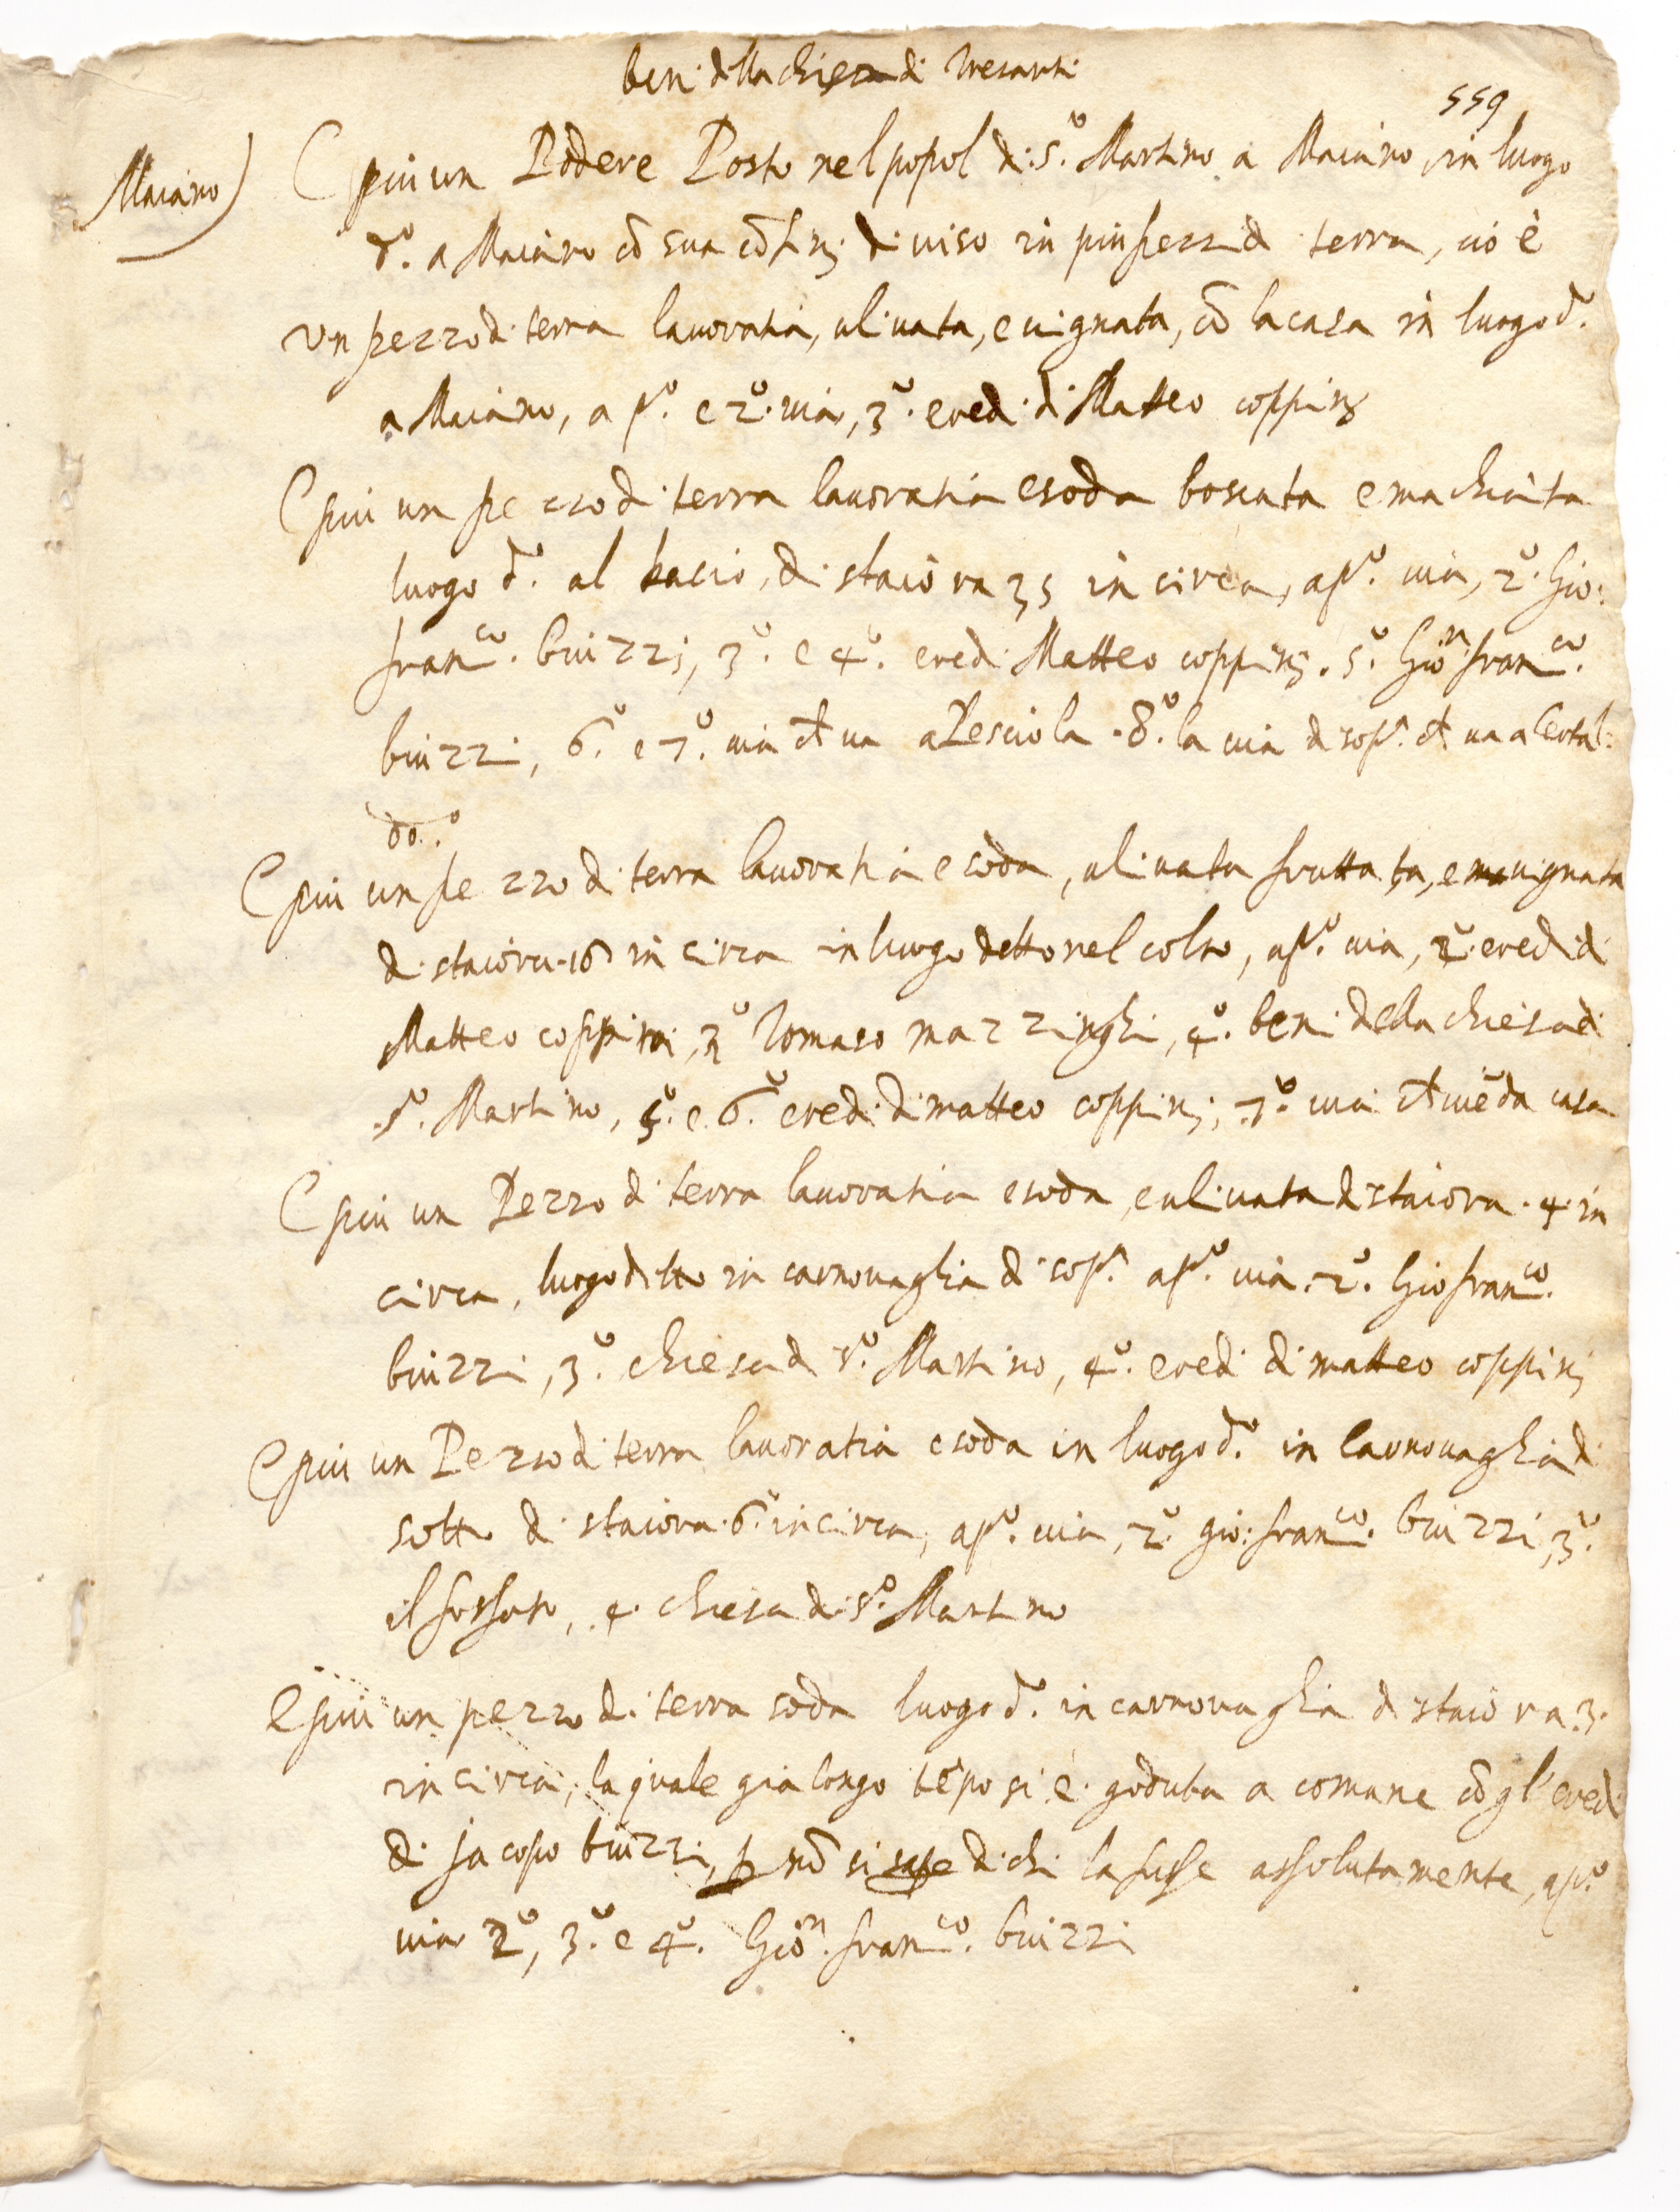 beni della chiesa di Tresanti
559
Maiano)
E piu un Podere Posto nel popol di S.º Martino a Maiano, in luogo
d.º a Maiano cō sua cōfinj diuiso in piu pezzi di terra, cio è
Un pezzo di terra lauoratia, uliuata, e uignata, cō la casa in luogo d.º
a Maiano, a p.º e 2.º uia, 3.º eredi di Matteo coppinj
E piu un pezzo di terra lauoratia e soda boscata e machiata
luogo d.º al bacio, di staiora 35 in circa, a p.º uia, 2.º Gio:
fran.co buizzj, 3.º e 4.º eredi Matteo coppinj. 5.º Gion fran.co
buizzi, 6.º e 7.º uia ch ua a Pesciola . 8.º la uia di sop.ª ch ua a Certal:
do.
E piu un pezzo di terra lauoratia e soda, uliuata fruttata, e uignata
di staiora .16 in circa in luogo detto nel colto, a p.º uia, 2.º eredi di
Matteo coppini, 3.º Tomaso mazzinghi, 4.º beni della chiesa di
S.º Martino, 5.º e 6.º eredi di matteo coppinj; 7.º uia ch uiē da casa
E piu un Pezzo di terra lauoratia e soda, e uliuata di staiora . 4 . in
circa, luogo ditto in carnouaghia di sop.ª a p.º uia . 2.º Gio fran.co
buizzi, 3.º chiesa di S.º Martino, 4.º eredi di matteo coppinj
E piu un Pezzo di terra lauoratia e soda in luogo d.º in Carnouaghia di
sotto di staiora . 6 . in circa, a p.º uia, 2.º gio: fran.co buizzi, 3.º
il fossato, 4. chiesa di S.º Martino
E piu un pezzo di terra soda luogo d.º in carnouaghia di staiora .3.
in circa, la quale gia longo tēpo si è goduta a comune cō gl' eredi
di jacopo buizzi, p nō si sape di chi la fusse assolutamente, a p.º
uia 2.º, 3.º e 4.º Gion. fran.co buizzi